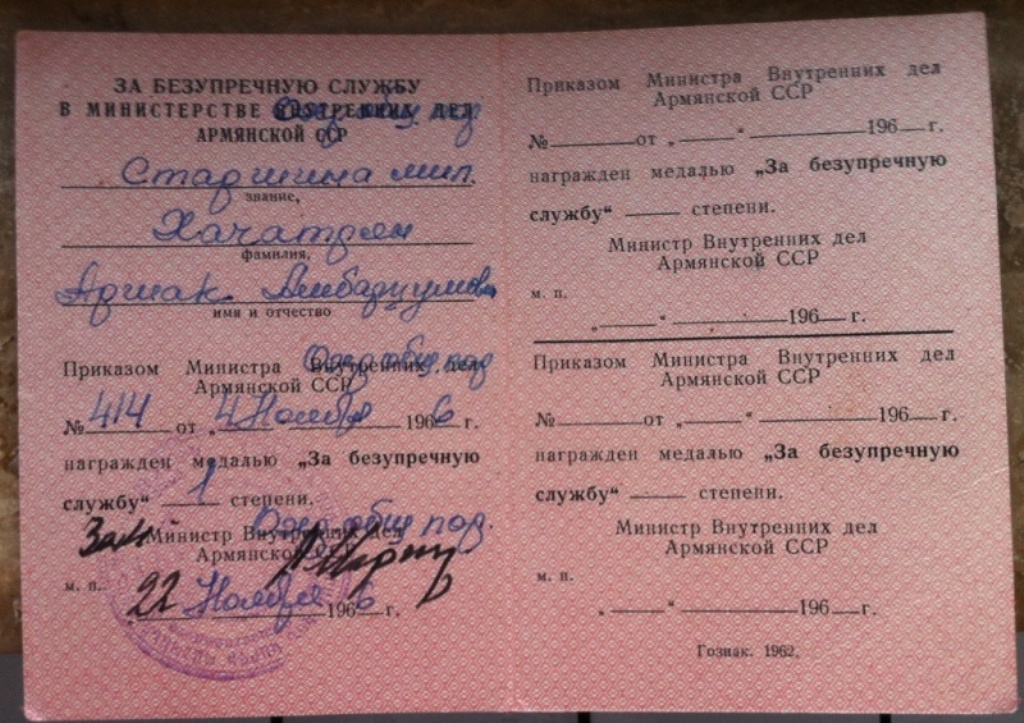 ЗА БЕЗУПРЕЧНУЮ СЛУЖБУ
В МИНИСТЕРСТВЕ ВНУТРЕННИХ ДЕЛ
АРМЯНСКОЙ ССР
Старшина мил.
звание,
Хачатрян
фамилия,
Аршак Амбарцумович
имя и отчество
Приказом Министра Внутренних дел
Армянской ССР
№ 414 от „4 Ноября 1966 г.
награжден медалью „За безупречную
службу“ 1 степени.
Зам Министр Внутренних дел
Армянской ССР
м. п.
22 Ноября 1966 г.
Приказом Министра Внутренних дел
Армянской ССР
№ от „ “ 196 г.
награжден медалью „За безупречную
службу“ степени.
Министр Внутренних дел
Армянской ССР
м. п.
„ “ 196 г.
Приказом Министра Внутренних дел
Армянской ССР
№ от „ “ 196 г.
награжден медалью „За безупречную
службу“ степени.
Министр Внутренних дел
Армянской ССР
м. п.
„ “ 196 г.
Гознак. 1962.